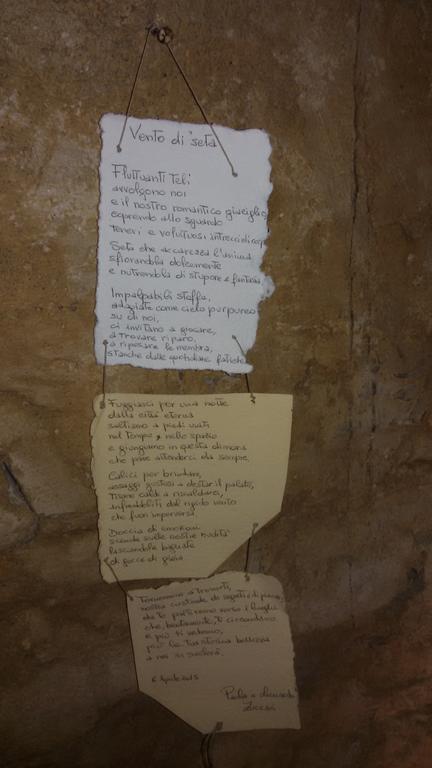 Vento di seta
Fluttuanti teli
avvolgono noi
e il nostro romantico giaciglio
coprendo allo sguardo
teneri e voluttuosi intrecci di corpi
Seta che accarezza l'anima,
sfiorandola dolcemente
e nutrendola di stupore e fantasia
Impalpabili stoffe,
adagiate come cielo purpureo
su di noi,
ci invitano a giocare,
a trovare riparo,
a riposare le membra,
stanche dalle quotidiane fatiche
Fuggiaschi per una notte
dalla città eterna
saltiamo a piedi uniti
nel tempo e nello spazio
e giungiamo in questa dimora
che pare attenderci da sempre.
Calici per brindare,
assaggi gustosi a destar il palato,
Tisane calde a riscaldarci,
infreddoliti dal rigido vento
che fuori imperversa
Doccia di emozioni
scende sulle nostre nudità
lasciandole bagnate
di gocce di gioia
Torneremo a trovarti,
nostra custode di segreti e di
da te porteremo
che, beatamente, ti circondano
e più ti vedranno,
più la tua storica bellezza
a noi si svelerà.
6 Aprile 2015
Paola e Leonardo